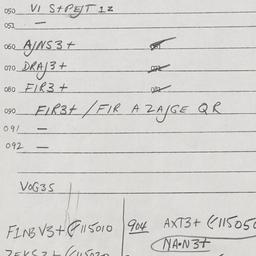 050 VI S+PEJT 12
051 —
060 AJNS3+
070 DRAJ3+
080 FIR3+
090 FIR3+ / FIR A ZAJGE QR
091 —
092 —
VOG3S
FINBV3+ (F115010
904 AXT3+ (F11505
NA·N3+